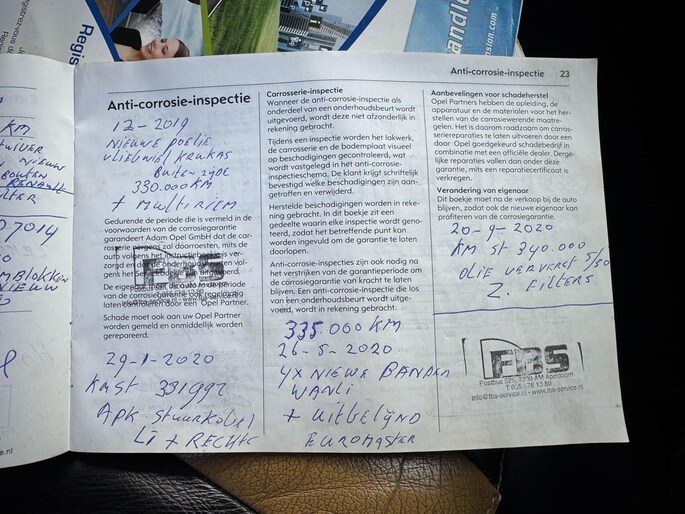 Regis
ndlu
sion.com
KM
NIEUW
BOUTEN
RENAULT
7014
MBLOKKEN
NIEUW
Anti-corrosie-inspectie 23
Anti-corrosie-inspectie
12-2019
NIEUWE POELIE
VLIEWIEL KRUKAS
BUITEN ZYDE
330.000 KM
+ MULTIRIEM
Gedurende de periode die is vermeld in de
voorwaarden van de corrosiegarantie
garandeert Adam Opel GmbH dat de car-
rosserie nergens zal doorroesten, mits de
auto volgens het instructieboekje is ver-
zorgd en de onderhoudsbeurten vol-
gens het
FBS
De eigenaar moet de auto in de periode
van de corrosiegarantie ook regelmatig
laten controleren door een Opel Partner.
Schade moet ook aan uw Opel Partner
worden gemeld en onmiddellijk worden
gerepareerd.
29-1-2020
KM ST 331992
APK STUURKOGEL
LI + RECHTS
Carrosserie-inspectie
Wanneer de anti-corrosie-inspectie als
onderdeel van een onderhoudsbeurt wordt
uitgevoerd, wordt deze niet afzonderlijk in
rekening gebracht.
Tijdens een inspectie worden het lakwerk,
de carrosserie en de bodemplaat visueel
op beschadigingen gecontroleerd, wat
wordt vastgelegd in het anti-corrosie-
inspectieschema. De klant krijgt schriftelijk
bevestigd welke beschadigingen zijn aan-
getroffen en verwijderd.
Herstelde beschadigingen worden in reke-
ning gebracht. In dit boekje zit een
gedeelte waarin elke inspectie wordt geno-
teerd, zodat het betreffende punt kan
worden ingevuld om de garantie te laten
doorlopen.
Anti-corrosie-inspecties zijn ook nodig na
het verstrijken van de garantieperiode om
de corrosiegarantie van kracht te laten
blijven. Een anti-corrosie-inspectie die los
van een onderhoudsbeurt wordt uitge-
voerd, wordt in rekening gebracht.
335.000 KM
26-5-2020
4X NIEUWE BANDEN
WANLI
+ UITGELIJND
EUROMASTER
Aanbevelingen voor schadeherstel
Opel Partners hebben de opleiding, de
apparatuur en de materialen voor het her-
stellen van de corrosiewerende maatre-
gelen. Het is daarom raadzaam om carros-
seriereparaties te laten uitvoeren door een
door Opel goedgekeurd schadebedrijf in
combinatie met een officiële dealer. Derge-
lijke reparaties vallen dan onder deze
garantie, mits een reparatiecertificaat is
verkregen.
Verandering van eigenaar
Dit boekje moet na de verkoop bij de auto
blijven, zodat ook de nieuwe eigenaar kan
profiteren van de corrosiegarantie.
20-9-2020
KM ST 340.000
OLIE VERVERST 5/50
2. FILTERS
FBS
Postbus 7300 AM Apeldoorn
info@fbs-service.nl - www.fbs-service.nl
e.nl